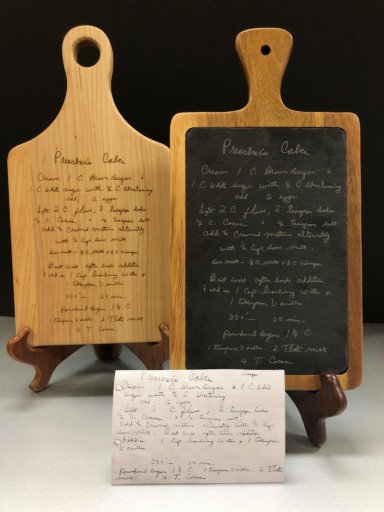 Preacher's Cake
Cream 1 C. Brown Sugar +
1 C. White sugar with ½ C Shortening
add 2 eggs
Sift 2 C. flour, 2 teaspoon Soda
½ C. Cocoa + ½ teaspoon salt
add to Creamed mixture alternately
with ½ Cup Sour milk.
Sour milk - ½ C. milk + 2 T Vinegar
Beat well after each addition
+ add in 1 Cup boiling water +
1 teaspoon Vanilla
350° - 25 min.
Powdered Sugar 1½ C.
1 teaspoon Vanilla - 2 T. hot milk
4 T. Cocoa
Preacher's Cake
Cream 1 C. Brown Sugar +
1 C. White sugar with ½ C Shortening
add 2 eggs
Sift 2 C. flour, 2 teaspoon Soda
½ C. Cocoa + ½ teaspoon salt
add to Creamed mixture alternately
with ½ Cup Sour milk.
Sour milk - ½ C. milk + 2 T Vinegar
Beat well after each addition
+ add in 1 Cup boiling water +
1 teaspoon Vanilla
350° - 25 min.
Powdered Sugar 1½ C.
1 teaspoon Vanilla - 2 T. hot milk
4 T. Cocoa
Preacher's Cake
Cream 1 C. Brown Sugar + 1 C. White
sugar with ½ C Shortening
add 2 eggs
Sift 2 C. flour, 2 teaspoon Soda
½ C. Cocoa + ½ teaspoon salt add
to Creamed mixture alternately with ½ Cup
Sour milk. Beat well after each addition
+ add in 1 Cup boiling water + 1 teaspoon
Vanilla
350° - 25 min.
Powdered Sugar 1½ C. 1 teaspoon Vanilla - 2 T. hot
milk 4 T. Cocoa